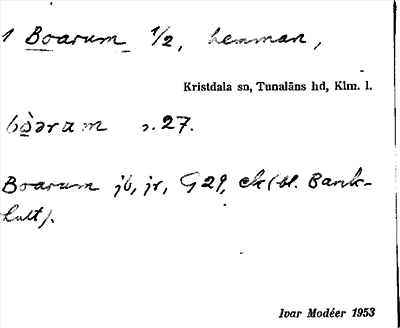 1 Boarum 1/2, hemman,
Kristdala sn, Tunaläns hd, Klm. l.
bòəram s. 27.
Boarum jb, jr, G 29, ek (bl. Bank-
hult).
Ivar Modéer 1953